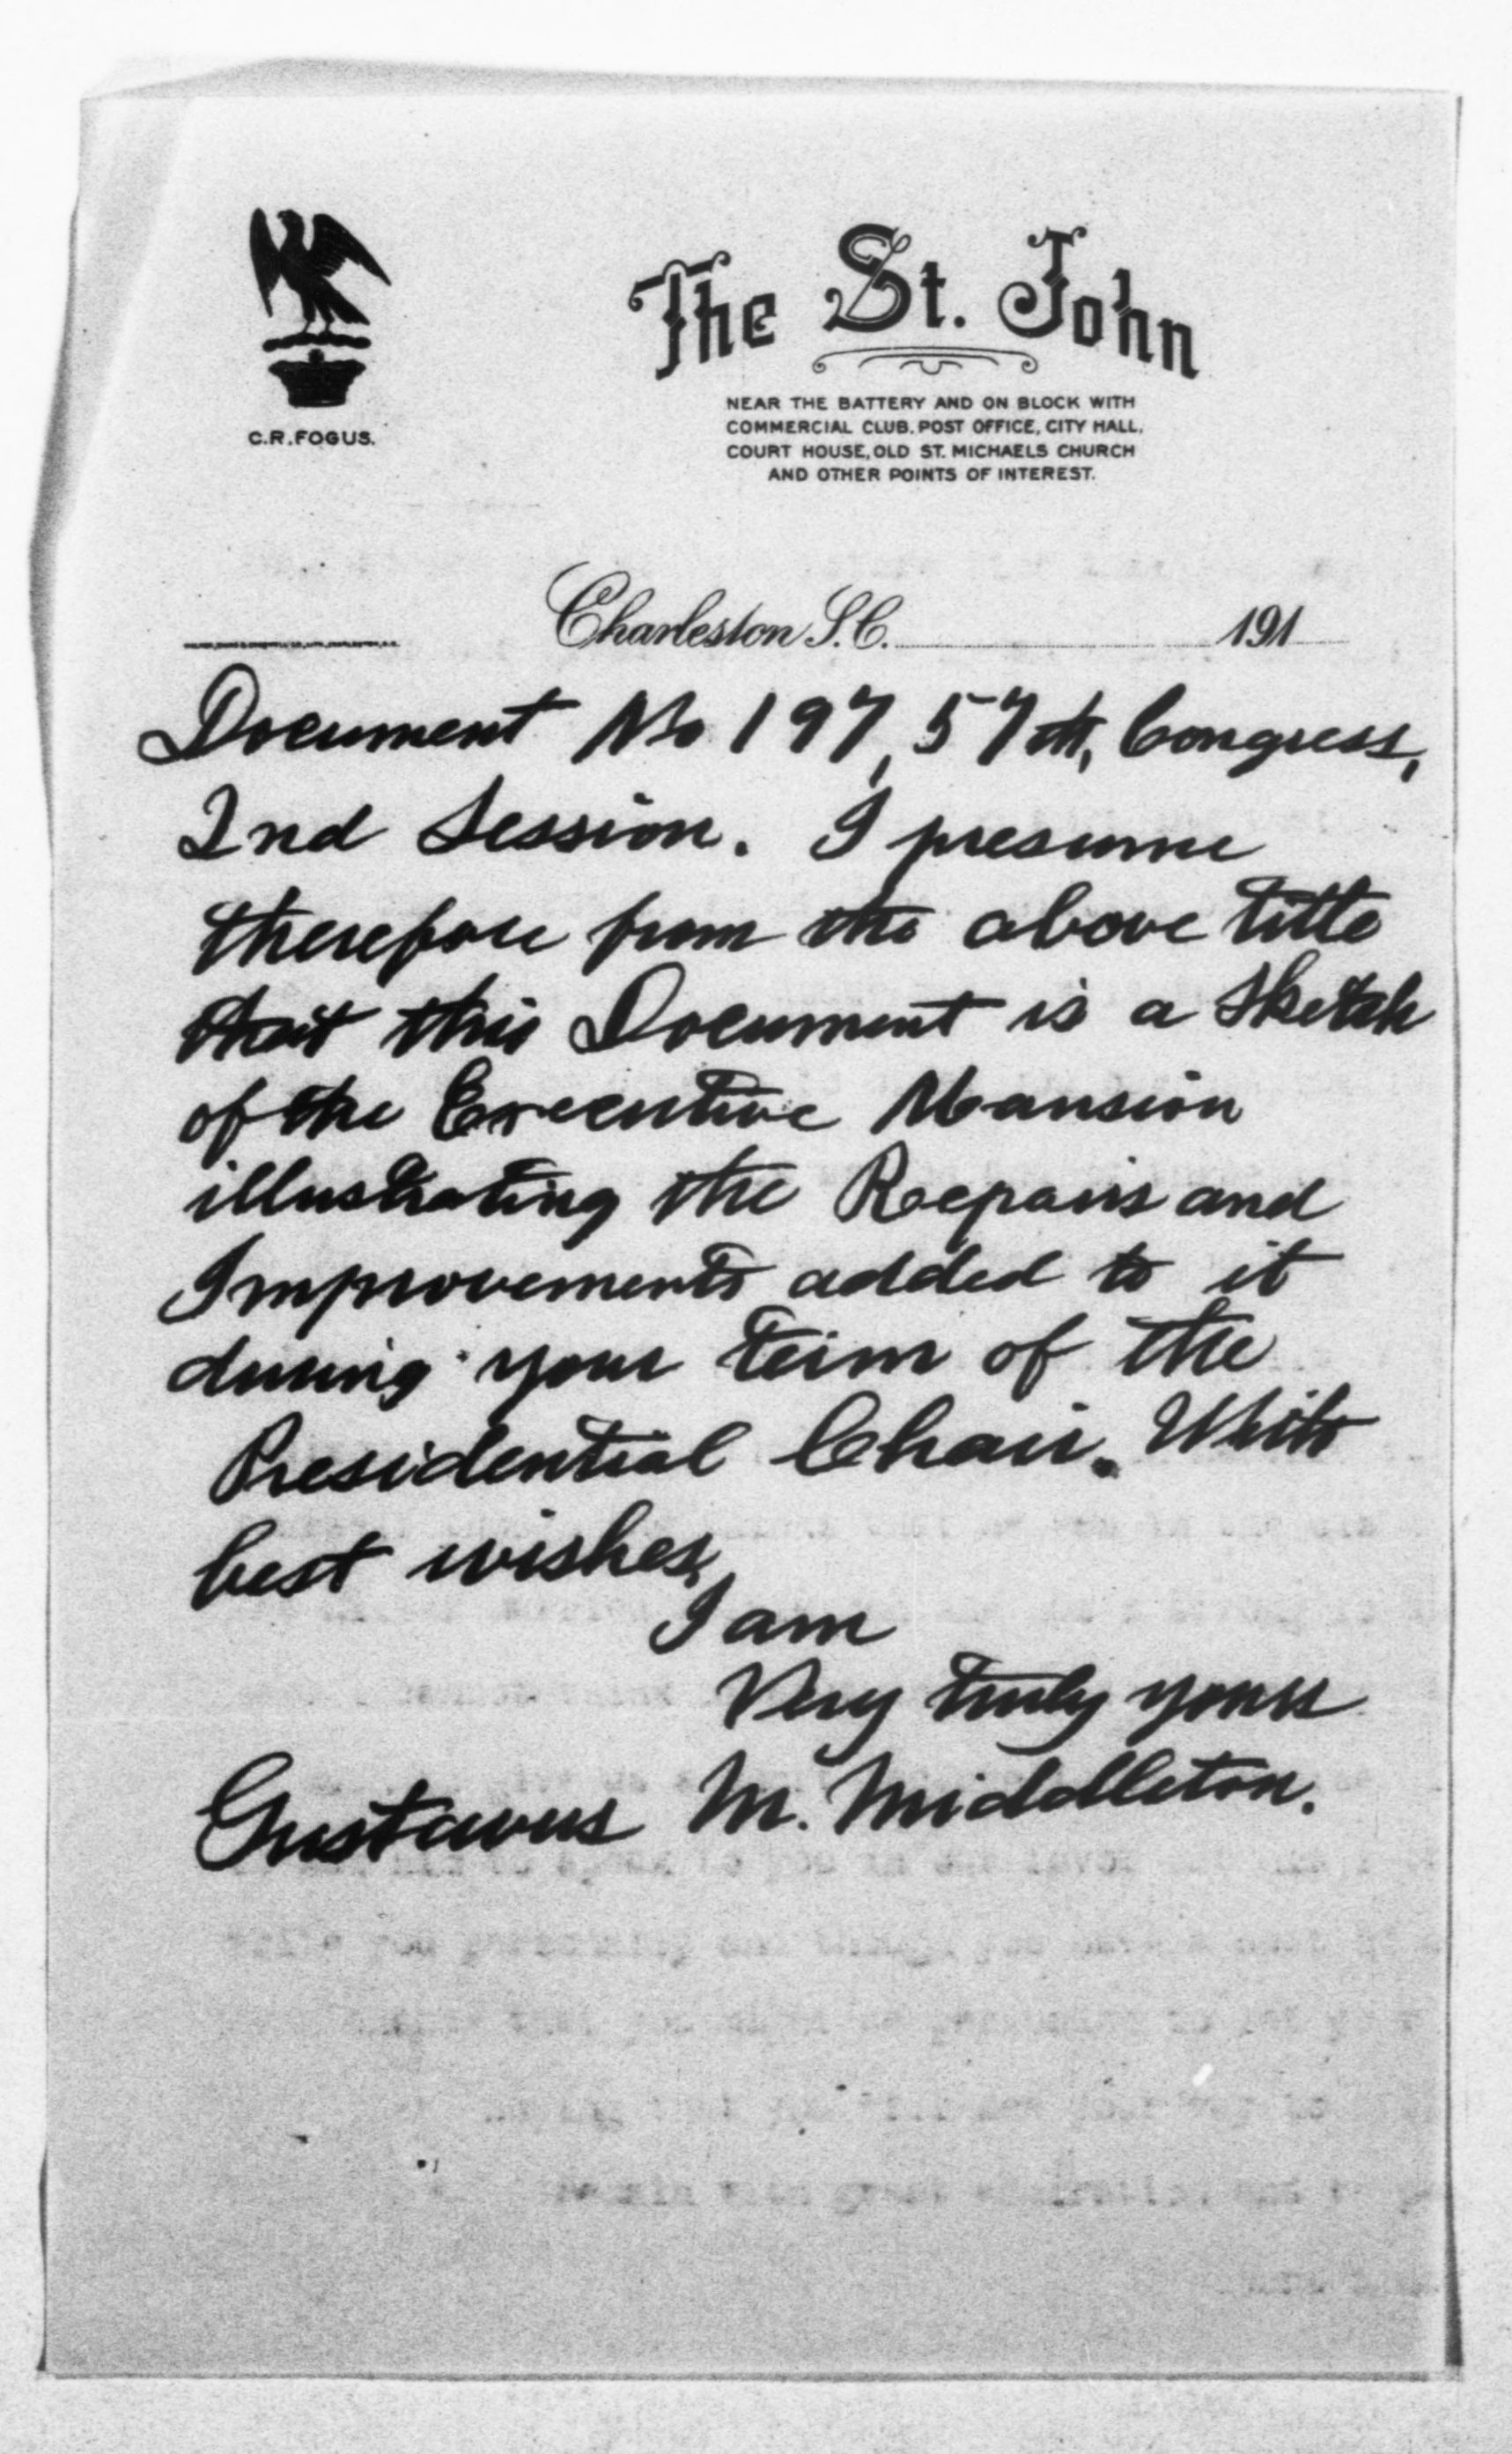 The St. John
NEAR THE BATTERY AND ON BLOCK WITH
COMMERCIAL CLUB, POST OFFICE, CITY HALL,
COURT HOUSE, OLD ST. MICHAELS CHURCH
AND OTHER POINTS OF INTEREST.
C.R. FOGUS.
Charleston S.C. 191
Document No 197, 57th, Congress,
2nd Session. I presume
therefore from the above title
that this Document is a Sketch
of the Executive Mansion
illustrating the Repairs and
Improvements added to it
during your term of the
Presidential Chair. With
best wishes,
I am
Very truly yours
Gustavus M. Middleton.